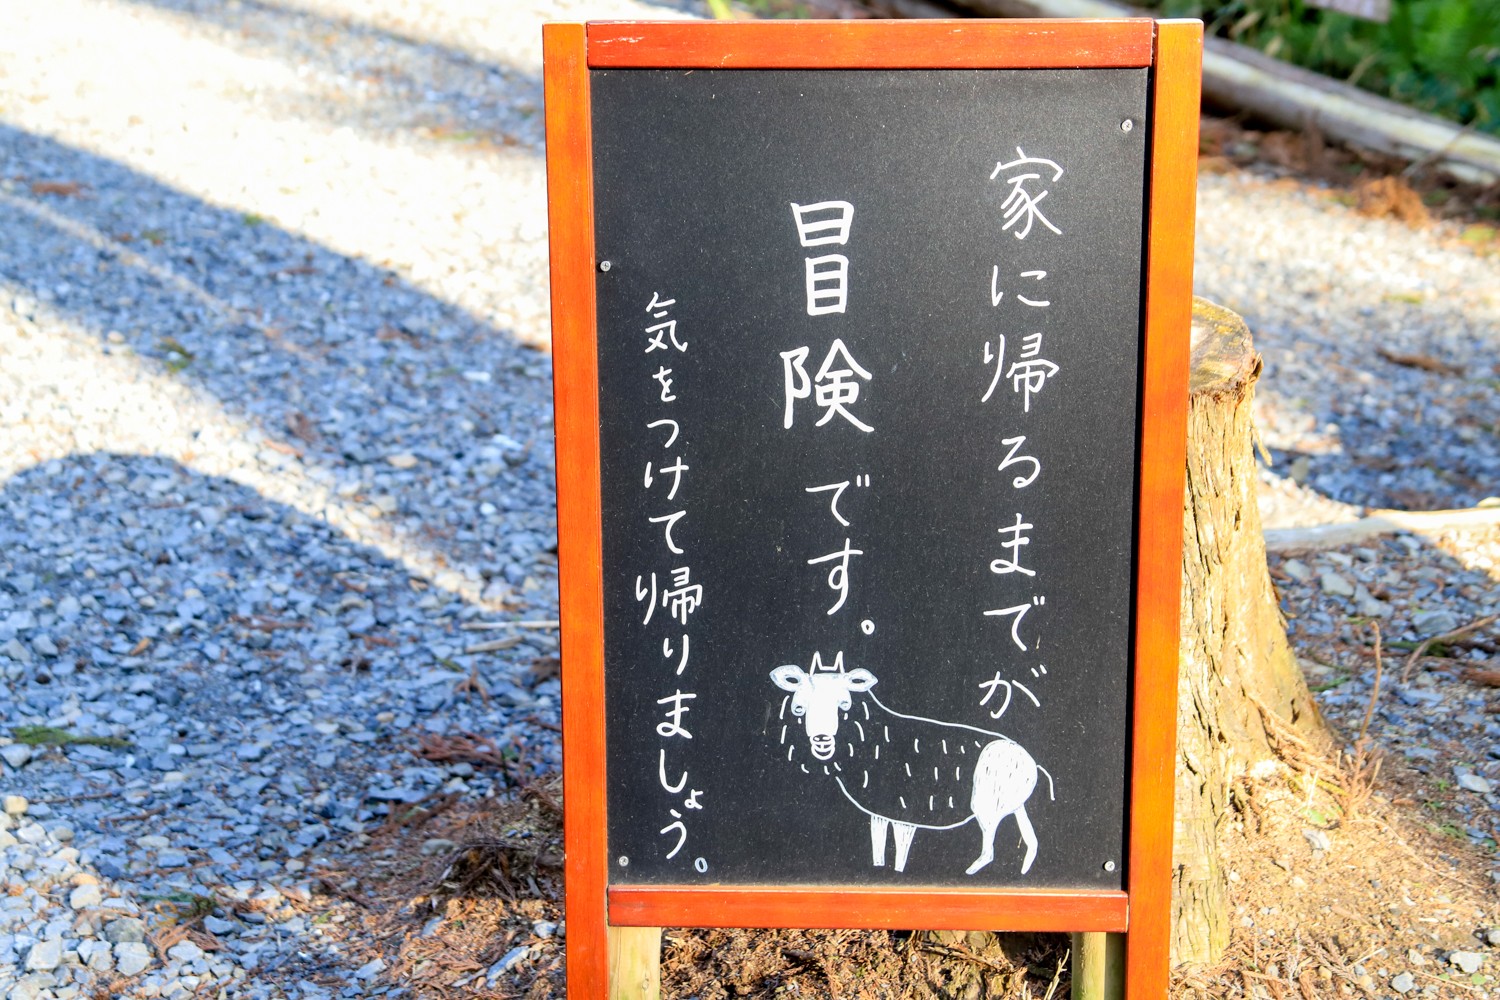 家に帰るまでが
冒険です。
気をつけて帰りましょう。